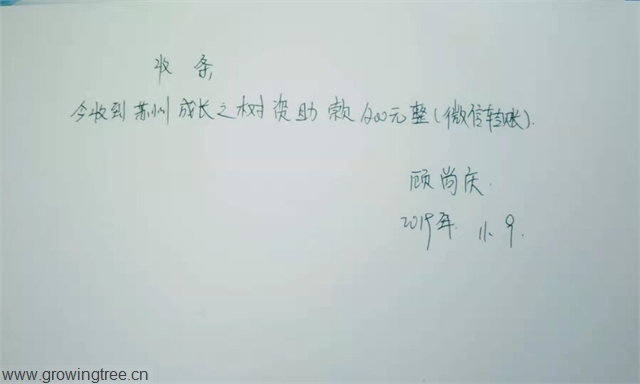 收条
今收到苏州成长之树资助款600元整(微信转账).
顾尚庆.
2019年. 11. 9.
www.growingtree.cn